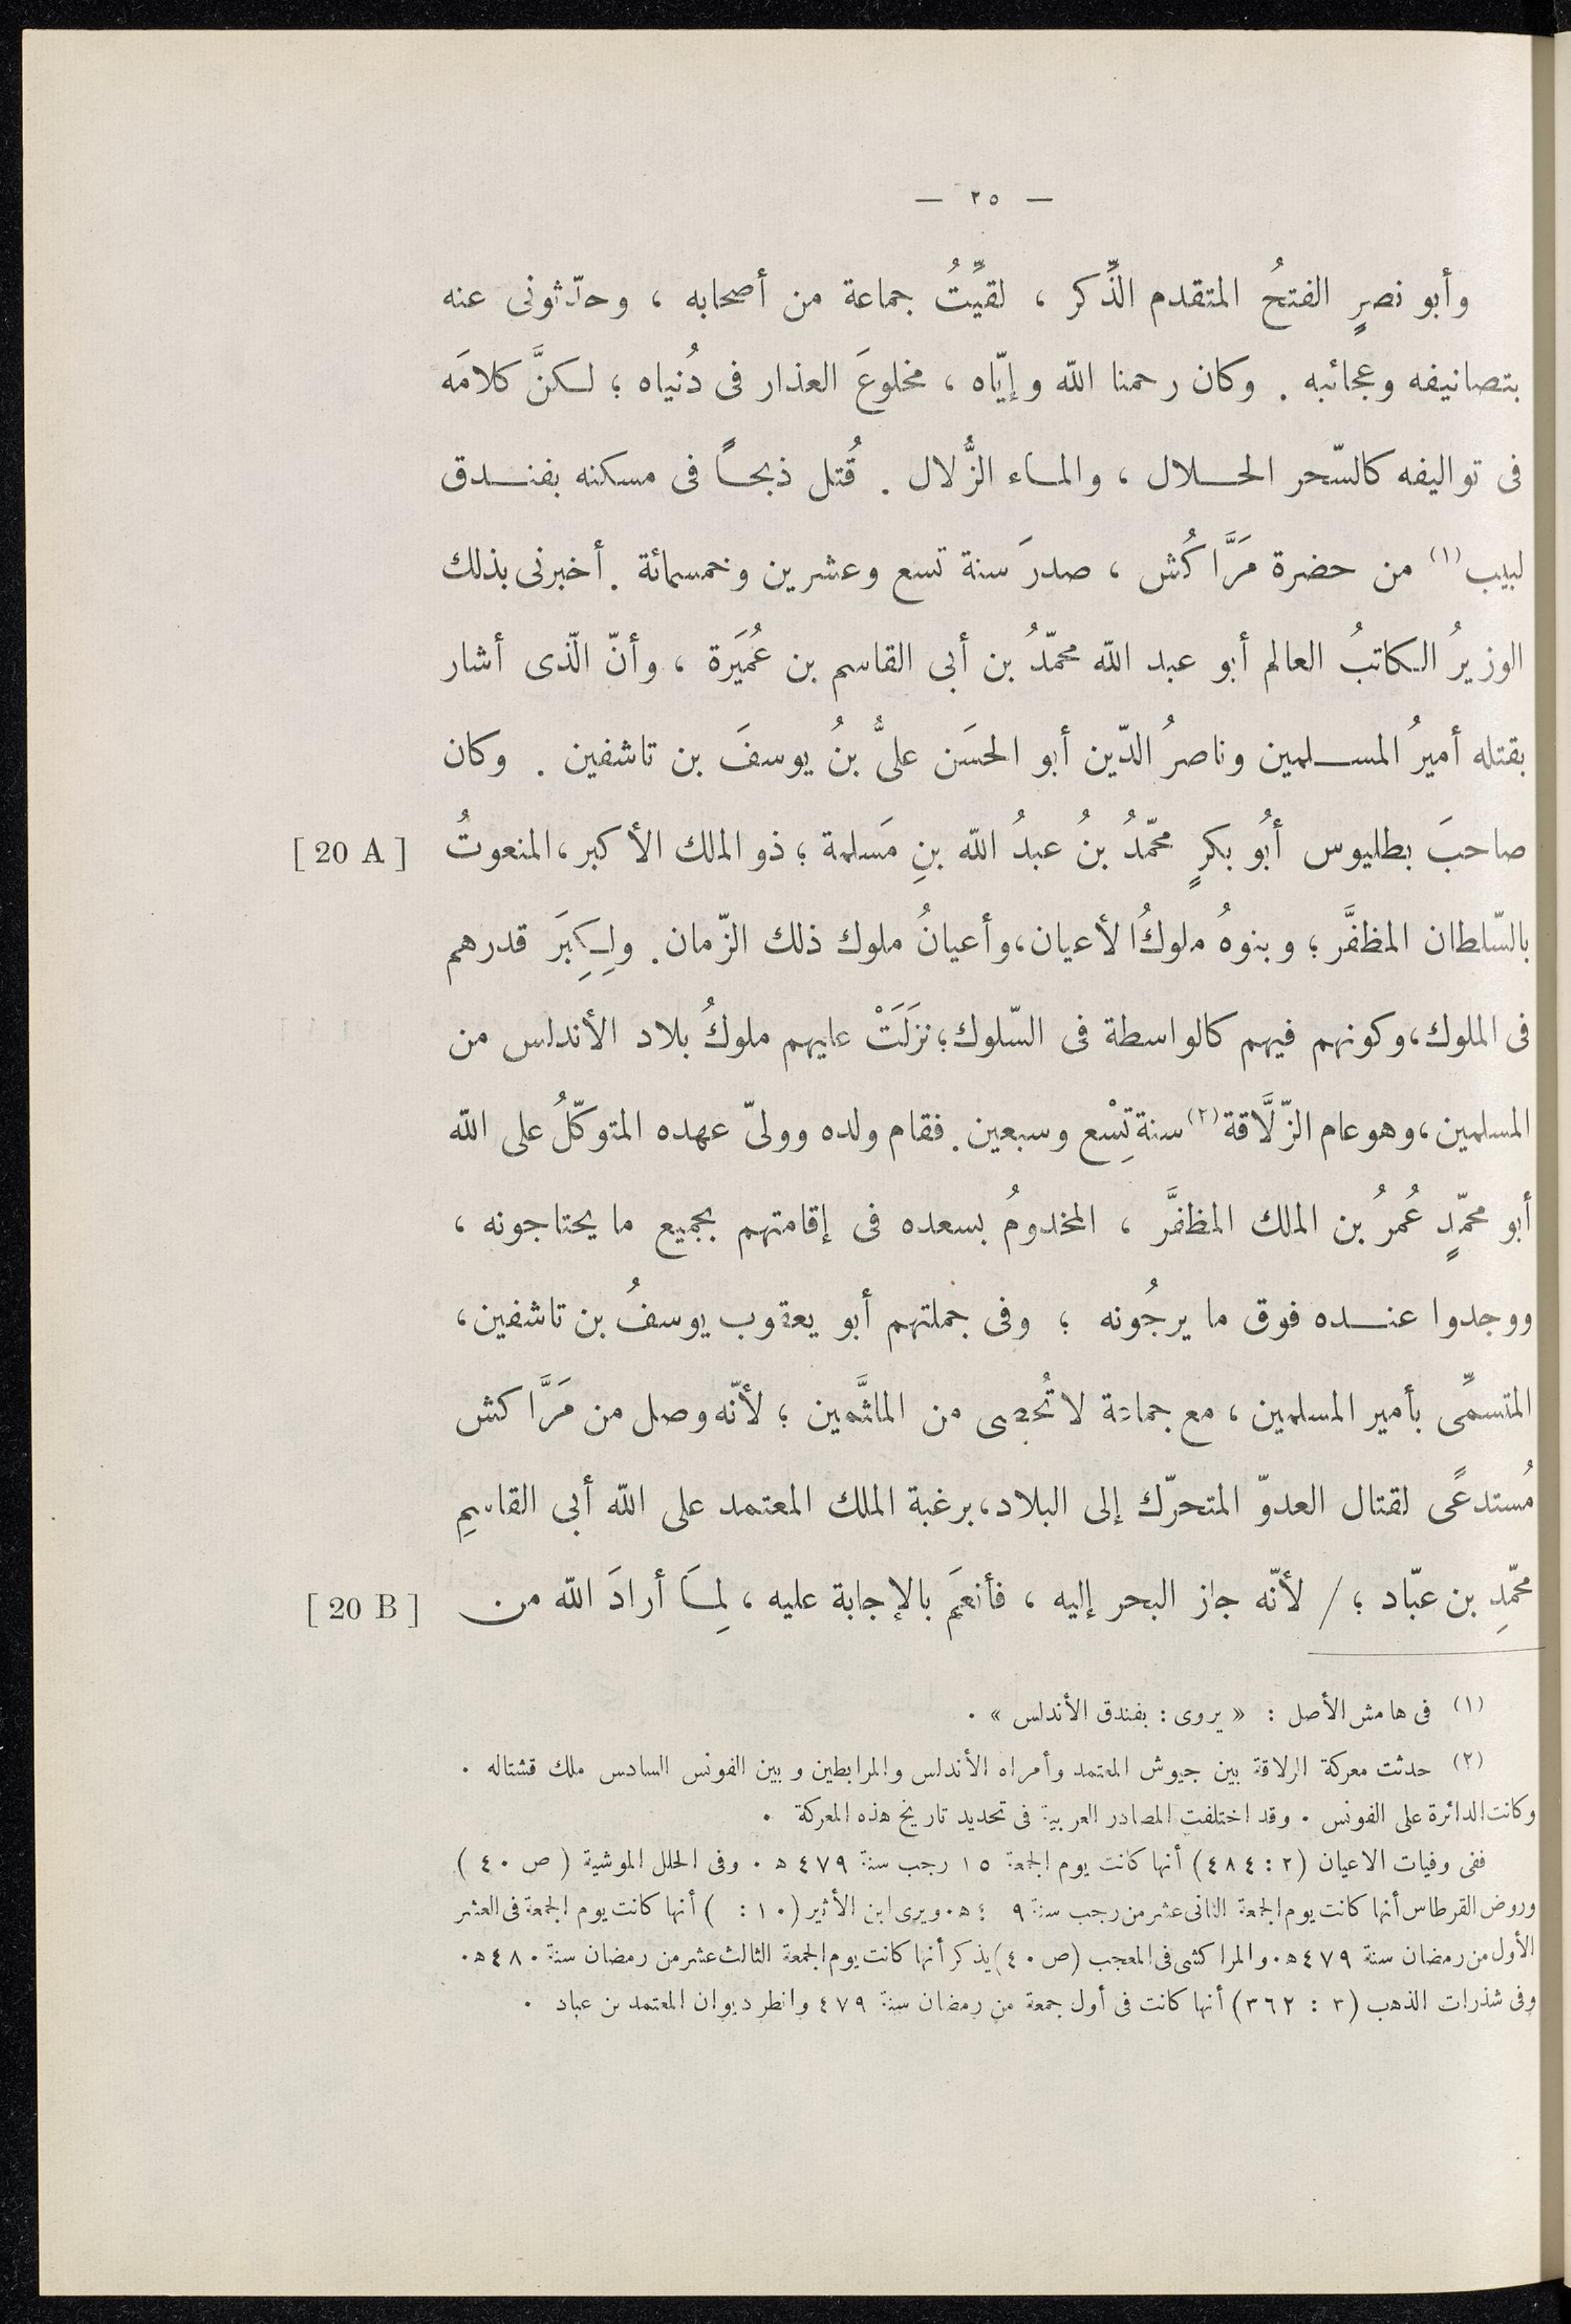 — ٢٥ —
وأبو نصرٍ الفتحُ المتقدم الذِّكر ، لقيِّتُ جماعة من أصحابه ، وحدّثونى عنه
بتصانيفه وعجائبه . وكان رحمنا الله وإيّاه ، مخلوعَ العذار فى دُنياه ؛ لكنَّ كلامَه
فى تواليفه كالسّحر الحلال ، والماء الزُّلال . قُتل ذبحاً فى مسكنه بفندق
لبيب(١) من حضرة مَرَّاكُش ، صدرَ سنة تسع وعشرين وخمسمائة . أخبرنى بذلك
الوزيرُ الكاتبُ العالم أبو عبد الله محمّدُ بن أبى القاسم بن عُمَيَرة ، وأنّ الّذى أشار
بقتله أميرُ المسلمين وناصرُ الدّين أبو الحسَن علىُّ بنُ يوسفَ بن تاشفين . وكان
صاحبَ بطليوس أبُو بكرٍ محمّدُ بنُ عبدُ الله بنِ مَسلمة ؛ ذو الملك الأكبر ، المنعوتُ [ 20 A ]
بالسّلطان المظفَّر ؛ وبنوهُ ملوكُ الأعيان ، وأعيانُ ملوك ذلك الزّمان . ولِكِبَر قدرهم
فى الملوك ، وكونهم فيهم كالواسطة فى السّلوك ؛ نزَلَتْ عليهم ملوكُ بلاد الأندلس من
المسلمين ، وهو عام الزّلَّاقة(٢) سنة تِسْع وسبعين . فقام ولده وولىّ عهده المتوكّلُ على الله
أبو محمّدٍ عُمرُ بن الملك المظفَّر ، المخدومُ بسعده فى إقامتهم بجميع ما يحتاجونه ،
ووجدوا عنده فوق ما يرجُونه ؛ وفى جملتهم أبو يعقوب يوسفُ بن تاشفين ،
المتسمِّى بأمير المسلمين ، مع جماعة لا تُحصى من الملثَّمين ؛ لأنّه وصل من مَرَّاكش
مُستدعًى لقتال العدوّ المتحرّك إلى البلاد ، برغبة الملك المعتمد على الله أبى القاسمِ
محمّدِ بن عبّاد ؛ / لأنّه جاز البحر إليه ، فأنعمَ بالإجابة عليه ، لِمَا أرادَ الله من [ 20 B ]
(١) فى هامش الأصل : « يروى : بفندق الأندلس » .
(٢) حدثت معركة الزلاقة بين جيوش المعتمد وأمراء الأندلس والمرابطين وبين الفونس السادس ملك قشتاله .
وكانت الدائرة على الفونس . وقد اختلفت المصادر العربية فى تحديد تاريخ هذه المعركة .
ففى وفيات الاعيان (٢ : ٤٨٤) أنها كانت يوم الجمعة ١٥ رجب سنة ٤٧٩ ه . وفى الحلل الموشية ( ص ٤٠ )
وروض القرطاس أنها كانت يوم الجمعة الثانى عشر من رجب سنة ٤ ٩ ه . ويرى ابن الأثير (١٠ : ) أنها كانت يوم الجمعة فى العشر
الأول من رمضان سنة ٤٧٩ ه . والمراكشى فى المعجب (ص ٤٠) يذكر أنها كانت يوم الجمعة الثالث عشر من رمضان سنة ٤٨٠ ه .
وفى شذرات الذهب (٣ : ٣٦٢) أنها كانت فى أول جمعة من رمضان سنة ٤٧٩ وانظر ديوان المعتمد بن عباد .